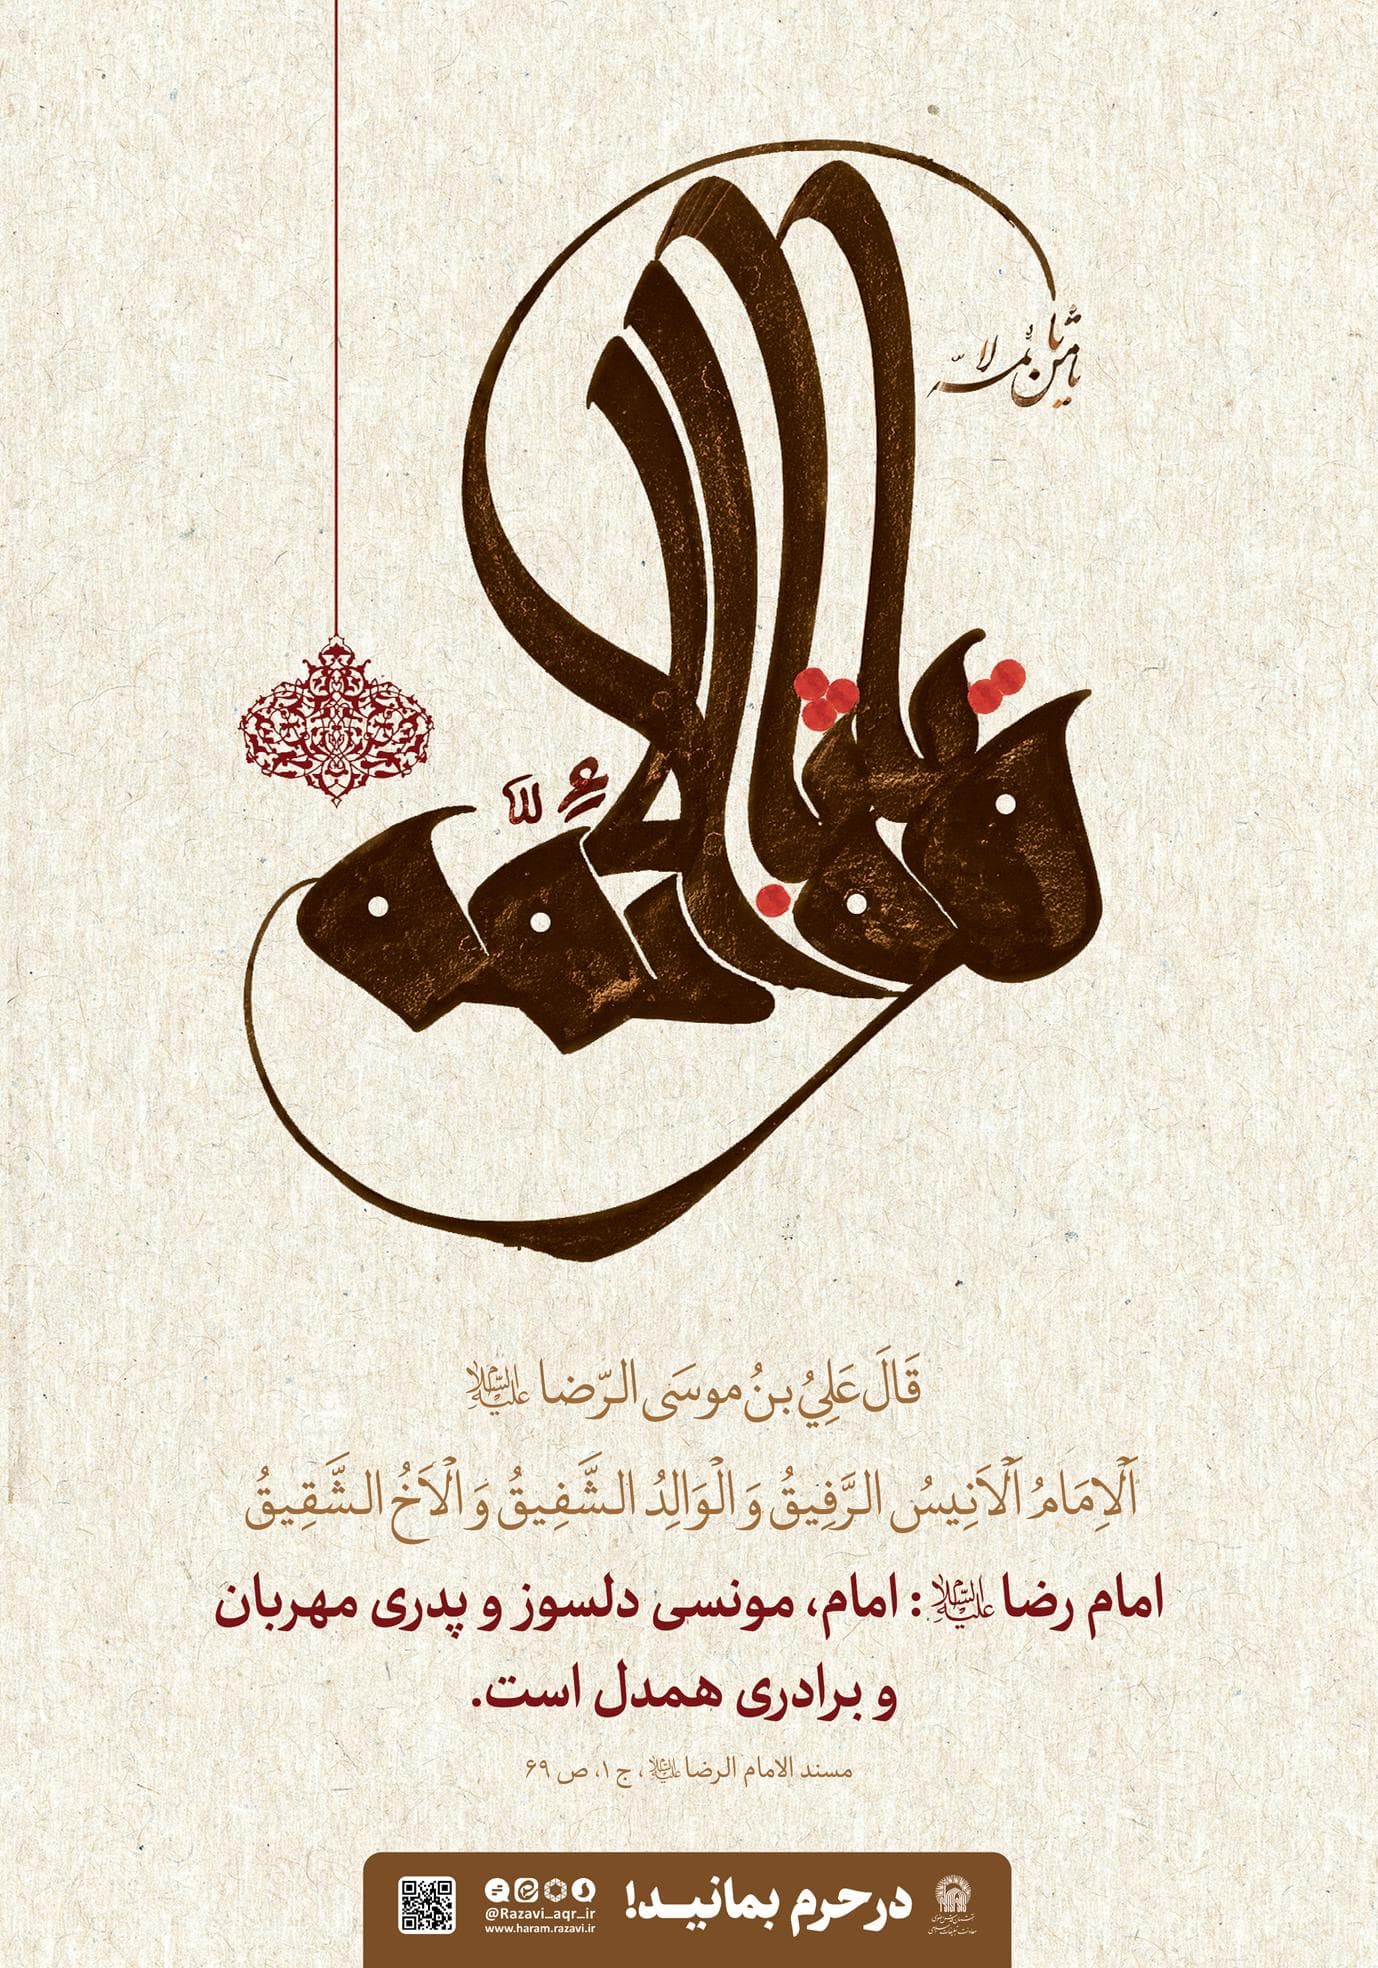 یا ثامن الائمه
قَالَ عَلِيُ بنُ موسَى الرّضا علیه السلام
اَلْاِمَامُ اَلْاَنِيسُ الرَّفِيقُ وَ الْوَالِدُ الشَّفِيقُ وَ الْاَخُ الشَّقِيقُ
امام رضا علیه السلام: امام، مونسی دلسوز و پدری مهربان
و برادری همدل است.
مسند الامام الرضا علیه السلام، ج ۱، ص ۶۹
درحرم بمانید!
@Razavi_aqr_ir
www.haram.razavi.ir